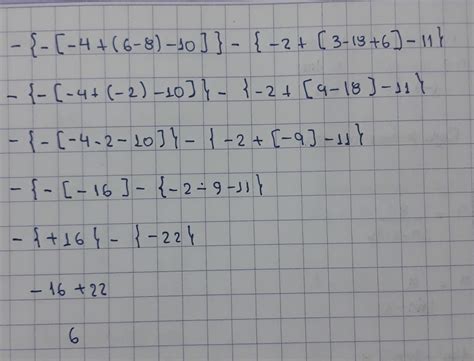 -{-[-4+(6-8)-10]}-{-2+[3-18+6]-11}
-{-[-4+(-2)-10]}-{-2+[9-18]-11}
-{-[-4-2-10]}-{-2+[-9]-11}
-{-[-16]-{-2-9-11}
-{+16}-{-22}
-16+22
6